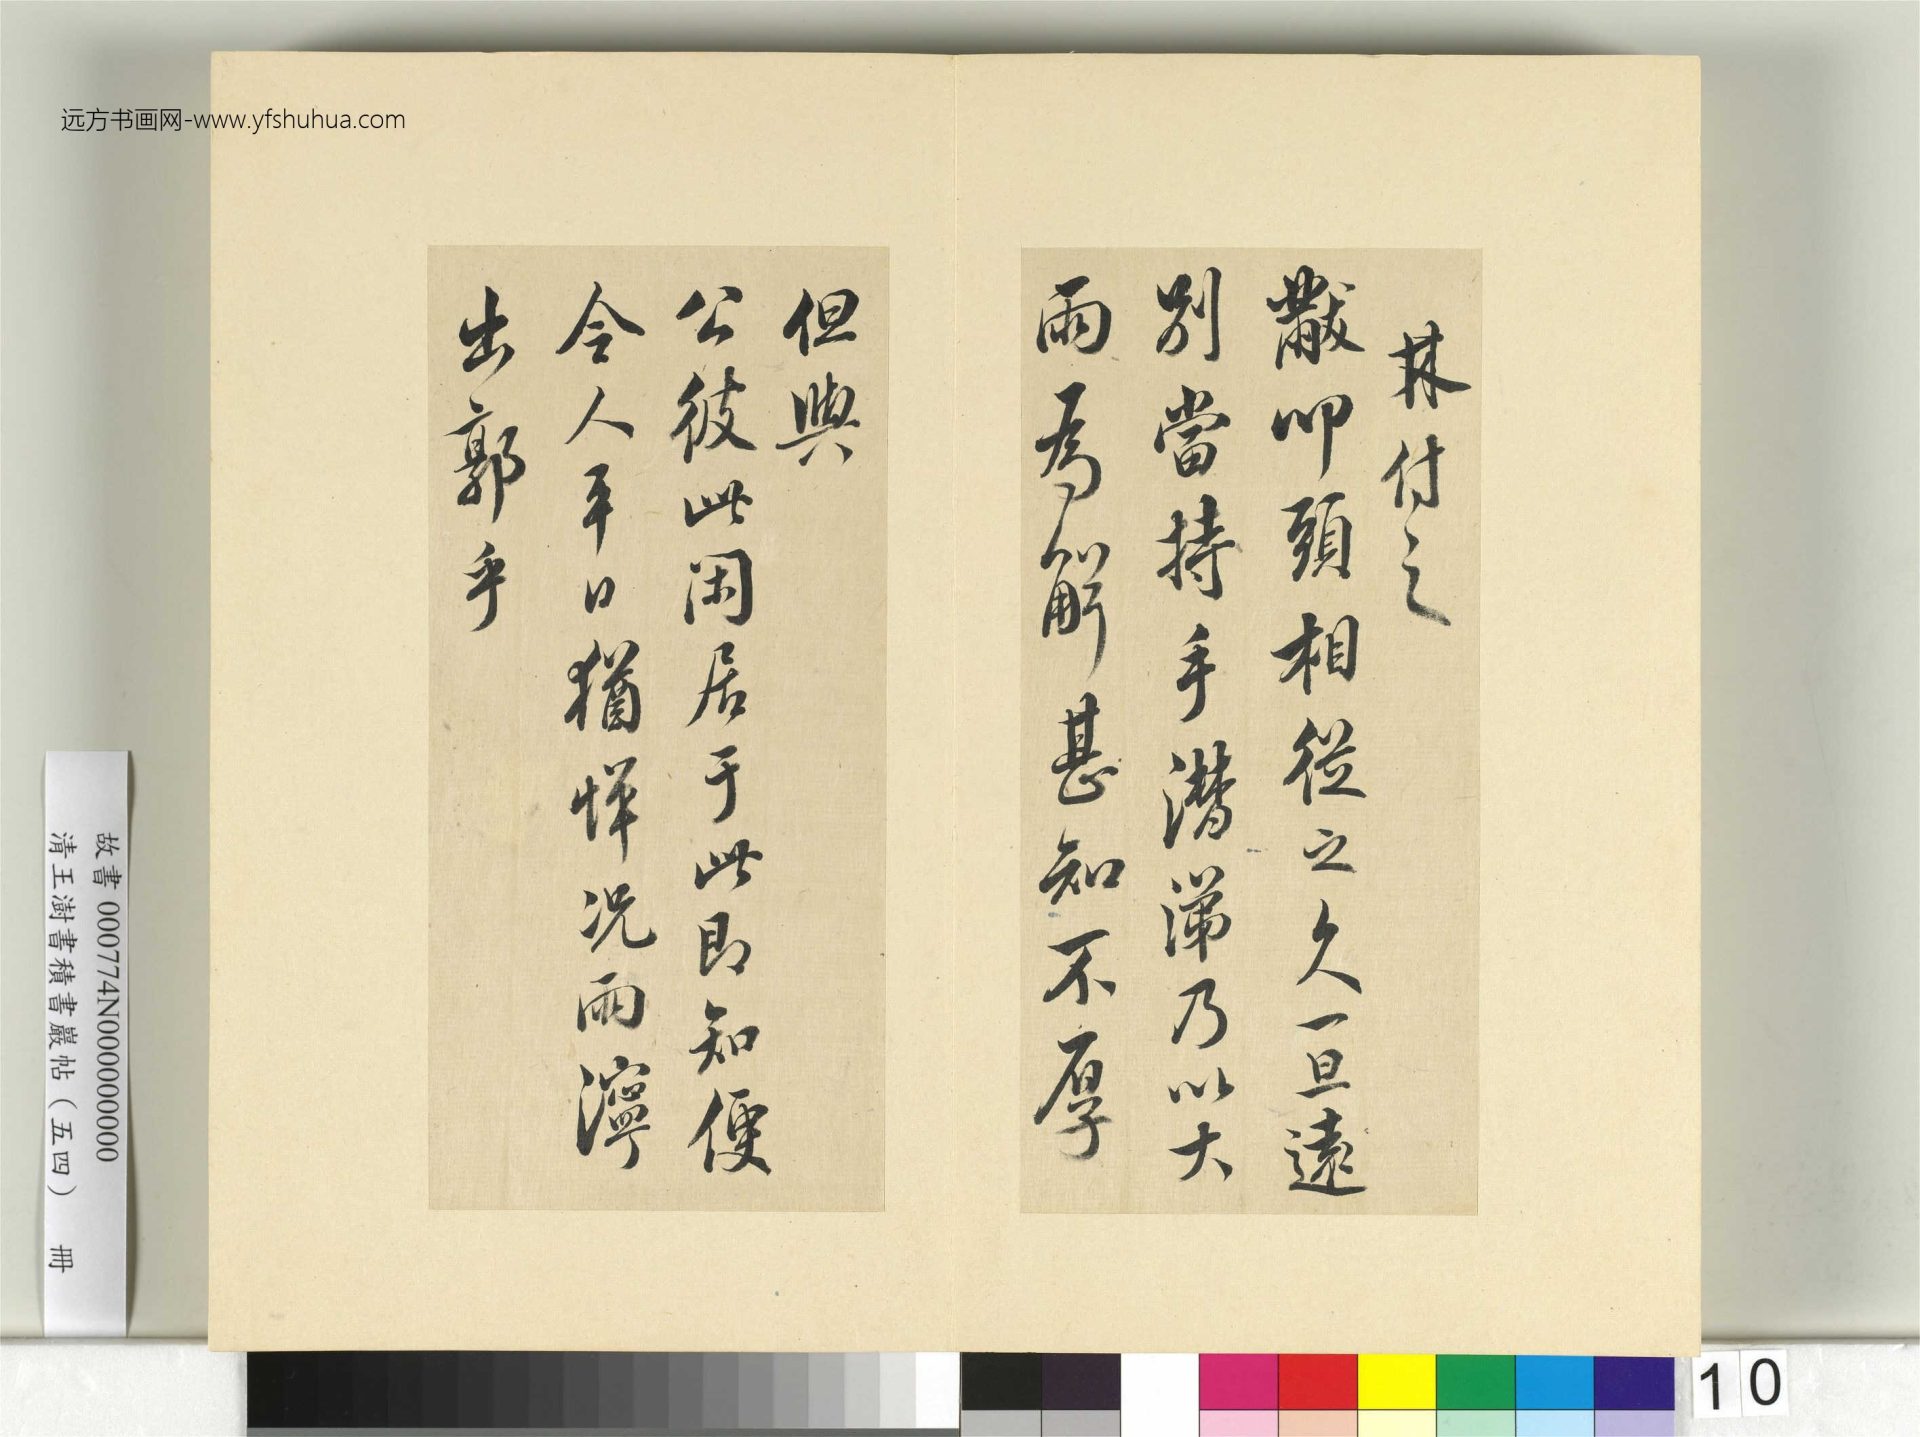 远方书画网-www.yfshuhua.com
林付之
黻叩頭相從之久一旦遠
別當持手潸涕乃以大
雨為解甚知不厚
但與
公彼此閑居于此即知便
令人平日猶憚况雨濘
出郭乎
故書 000774N000000000
清王澍書積書巖帖(五四) 冊
10